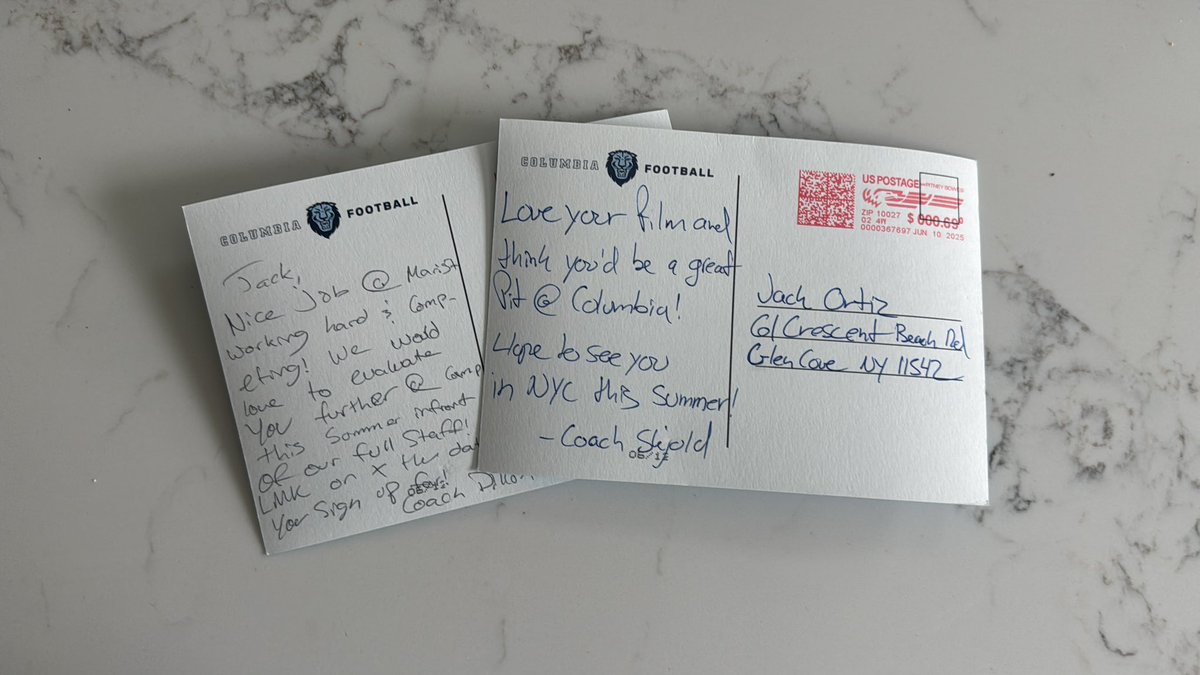 COLUMBIA FOOTBALL
Jack,
Nice job @ Marist
working hard & comp-
eting! We would
love to evaluate
you further @ camp
this summer infront
of our full staff!
LMK on X the da
you sign up for!
Coach
COLUMBIA FOOTBALL
Love your film and
think you'd be a great
Fit @ Columbia!
Hope to see you
in NYC this summer!
- Coach Skjold
05/12
US POSTAGE PITNEY BOWES
ZIP 10027 $ 000.69⁰
02 4W
0000367697 JUN 10 2025
Jack Ortiz
61 Crescent Beach Rd
Glen Cove NY 11542